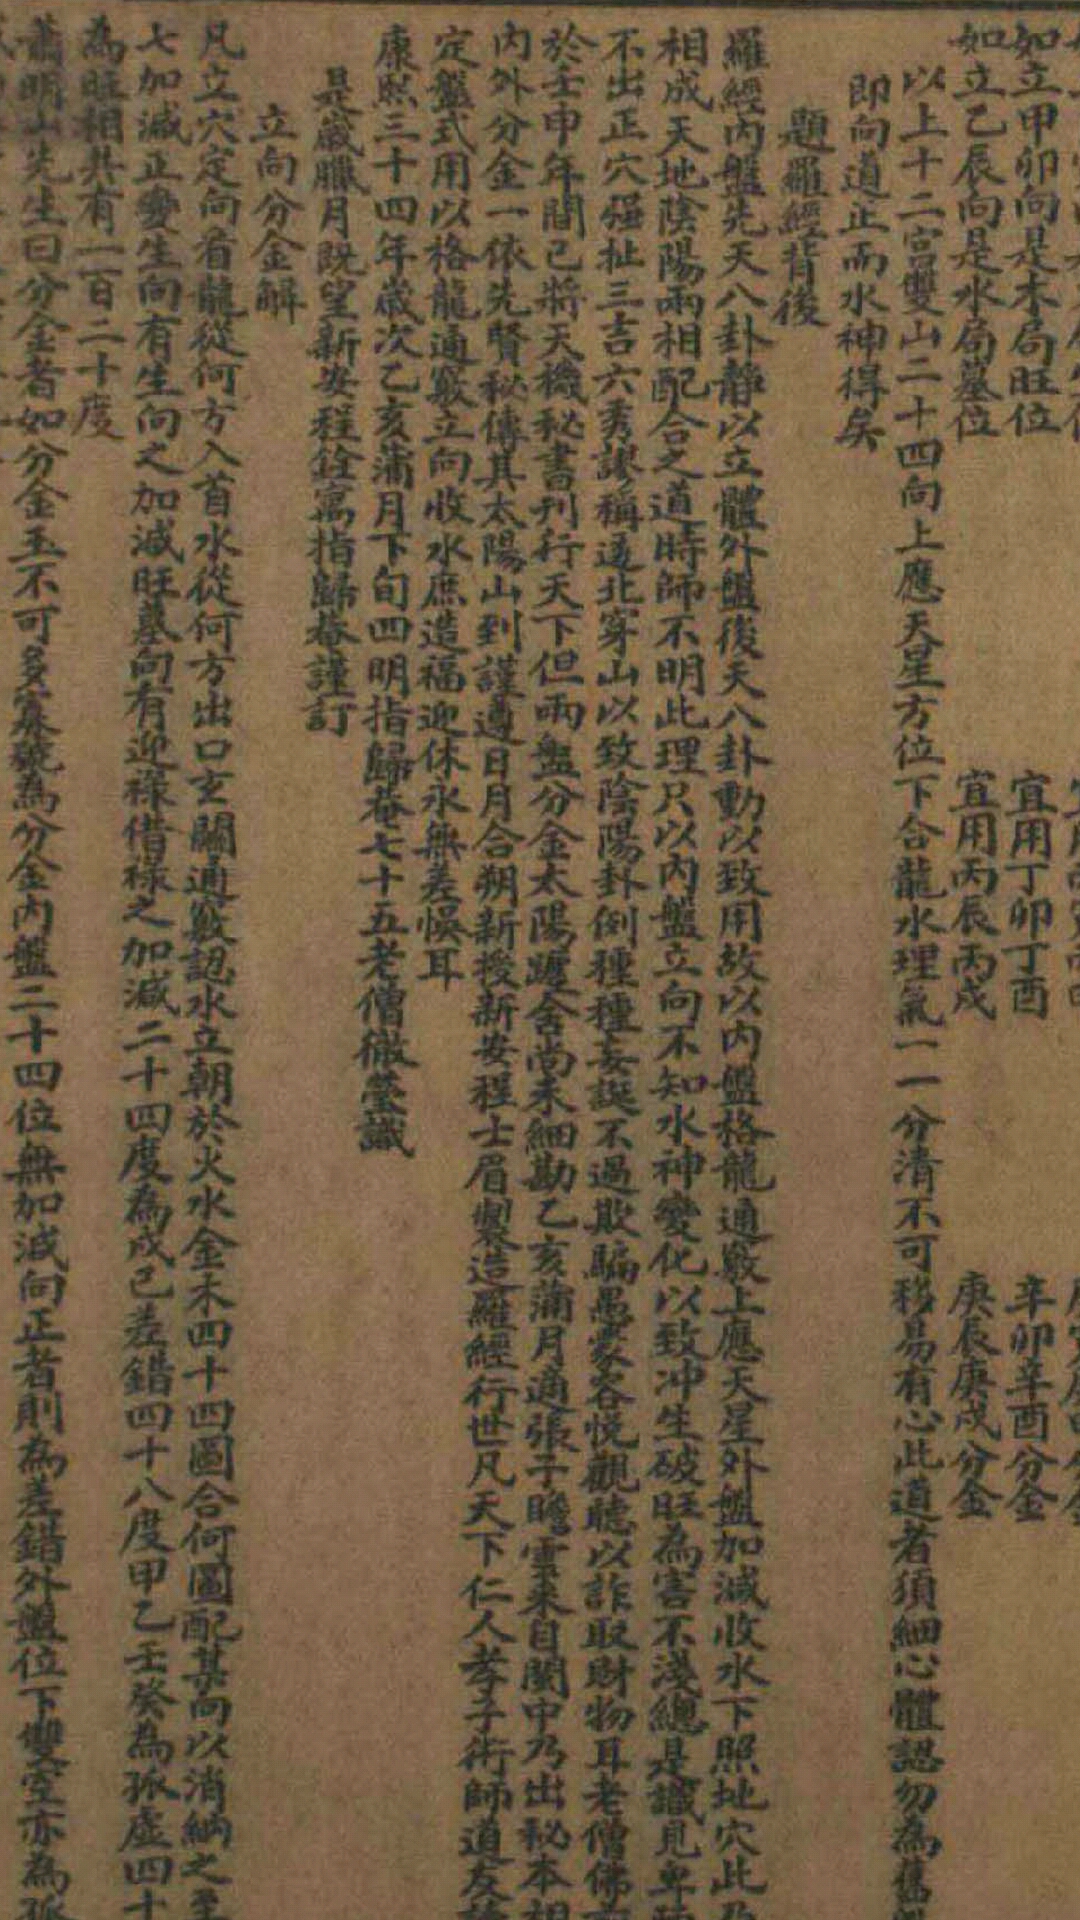 如立甲卯向是木局旺位 宜用丁卯丁酉 辛卯辛酉分金
如立乙辰向是水局墓位 宜用丙辰丙戌 庚辰庚戌分金
以上十二宮雙山二十四向上應天星方位下合龍水理氣一一分清不可移易有心此道者須細心體認勿為舊
即向道正而水神得矣
題羅經背後
羅經內盤先天八卦靜以立體外盤後天八卦動以致用故以內盤格龍通竅上應天星外盤加減收水下照地穴此乃
相成天地陰陽兩相配合之道時師不明此理只以內盤立向不知水神變化以致冲生破旺為害不淺總是識見卑
不出正穴強扯三吉六秀謬稱透北穿山以致陰陽卦倒種種妄誕不過欺騙愚蒙容悅觀聽以詐取財物耳老僧佛
於壬申年間已將天機秘書刋行天下但兩盤分金太陽躔舍尚未細勘乙亥蒲月適張子瞻雲來自閩中乃出秘本相
內外分金一依先賢秘傳其太陽山到謹遵日月合朔新授新安程士眉製造羅經行世凡天下仁人孝子術師道友
定盤式用以格龍通竅立向收水庶造福迎休永無差悞耳
康熈三十四年歲次乙亥蒲月下旬四明指歸菴七十五老僧徹瑩識
是歲臘月既望新安程銓寓指歸菴謹訂
立向分金觧
凡立穴定向看龍從何方入首水從何方出口玄關通竅認水立朝於火水金木四十四圖合何圖配某向以消納之至
七加減正變生向有生向之加減旺墓向有迎祿借祿之加減二十四度為戊己差錯四十八度甲乙壬癸為孤虛四十
為旺相共有一百二十度
蕭明山先生曰分金者如分金玉不可多寡號為分金內盤二十四位無加減向正者則為差錯外盤位下雙空亦為孤